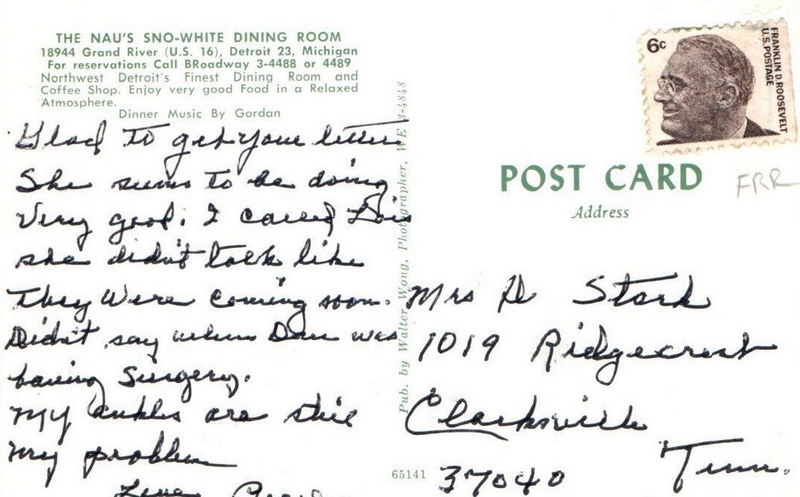 THE NAU'S SNO-WHITE DINING ROOM
18944 Grand River (U.S. 16), Detroit 23, Michigan
For reservations Call BRoadway 3-4488 or 4489
Northwest Detroit's Finest Dining Room and
Coffee Shop. Enjoy very good Food in a Relaxed
Atmosphere.
Dinner Music By Gordan
Glad to get your letter
She seems to be doing
Very good. I called Lois
she didn't talk like
They Were coming soon.
Didn't say when Dan was
having Surgery.
My ankles are still
my problem
Love
Pub. by Walter Wong, Photographer, WE 3-4848
65141
6c
FRANKLIN D. ROOSEVELT
U.S. POSTAGE
FRR
POST CARD
Address
Mrs D Stark
1019 Ridgecrest
Clarksville
Tenn.
37040